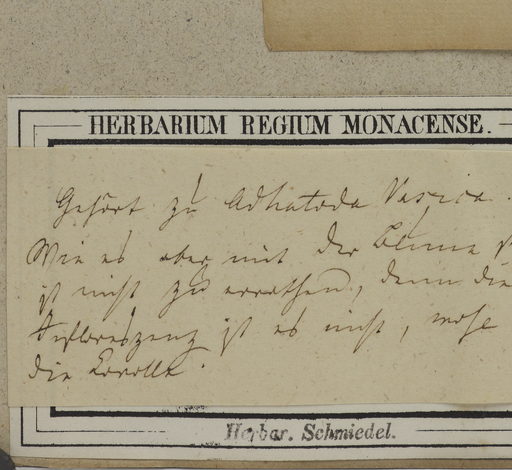 HERBARIUM REGIUM MONACENSE.
Gehört zu Adhatoda Vasica.
Wie es aber mit der Blume
ist nicht zu errathen, denn die
Infloreszenz ist es nicht, wohl
die Corolla.
Herbar. Schmiedel.